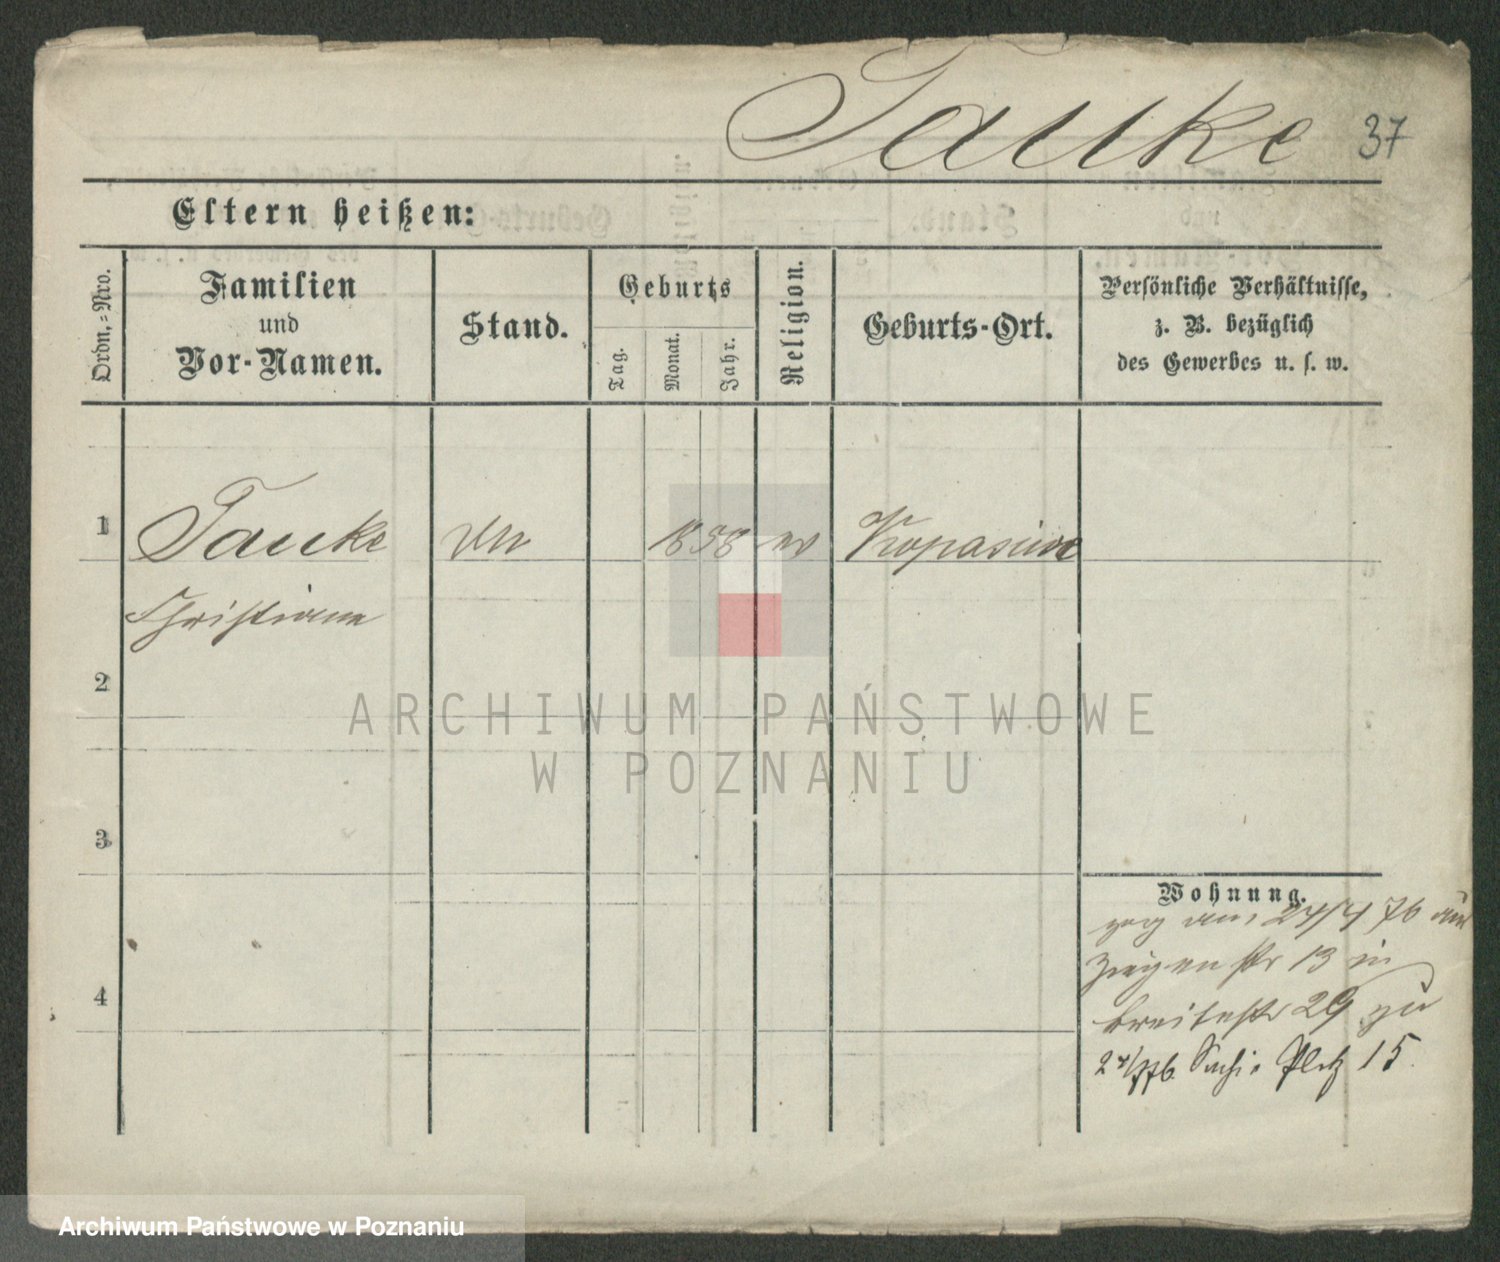 Tauke 37
Eltern heißen:
Ordn.=Nro.
Familien
und
Vor-Namen.
Stand.
Geburts
Tag.
Monat.
Jahr.
Religion.
Geburts-Ort.
Persönliche Verhältnisse,
z. B. bezüglich
des Gewerbes u. s. w.
1 Tauke 1858 ev
Christiane
2
3
4
Wohnung.
zog am 24/4 76 aus
Ziegenstr 13 in
breitestr 29 zu
Platz 15.
ARCHIWUM PAŃSTWOWE
W POZNANIU
Archiwum Państwowe w Poznaniu